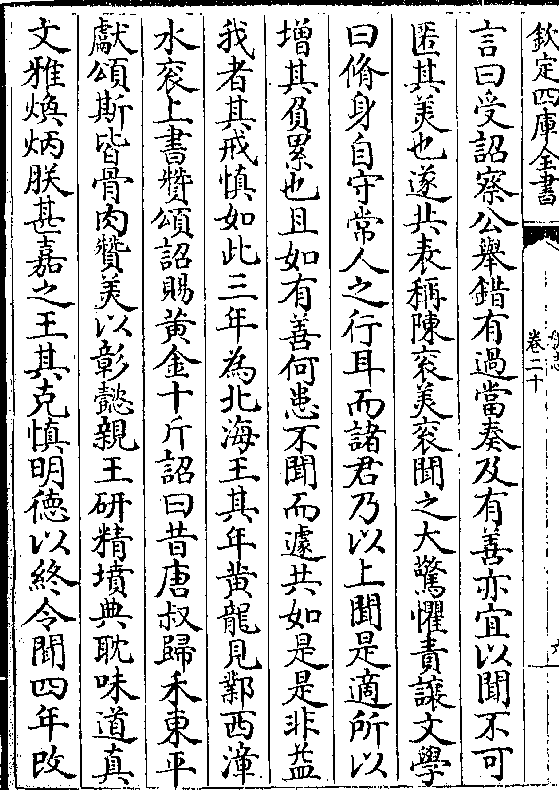 欽定四庫全書
卷二十
言曰受詔察公舉錯有過當奏及有善亦宜以聞不可
匿其美也遂共表稱陳衮美衮聞之大驚懼責讓文學
曰脩身自守常人之行耳而諸君乃以上聞是適所以
增其負累也且如有善何患不聞而遽共如是是非益
我者其戒慎如此三年為北海王其年黄龍見鄴西漳
水衮上書贊頌詔賜黄金十斤詔曰昔唐叔歸禾東平
獻頌斯皆骨肉贊美以彰懿親王研精墳典耽味道真
文雅煥炳朕甚嘉之王其克慎明德以終令聞四年改